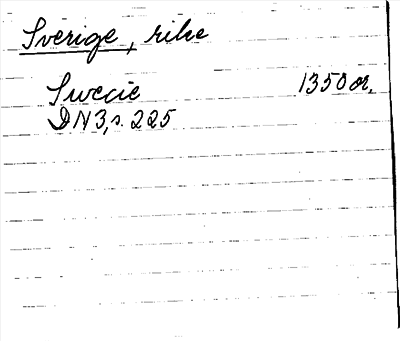 Sverige, rike
Swecie 1350 or.
DN3, s. 225